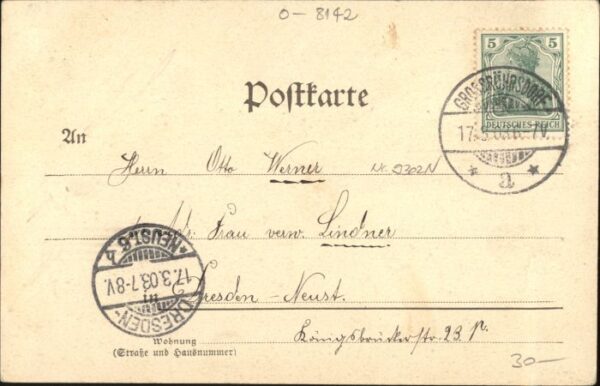 O-8142
5 5
DEUTSCHES REICH
Postkarte
GROSSRÖHRSDORF
17.3.03. 6-7V.
* a *
An
Herrn Otto Werner
Adr. Frau verw. Lindner
Dresden-Neust.
Königsbrückerstr. 23 p.
DRESDEN-NEUST. 6
17.3.03.7-8V.
Wohnung
(Straße und Hausnummer)
30-